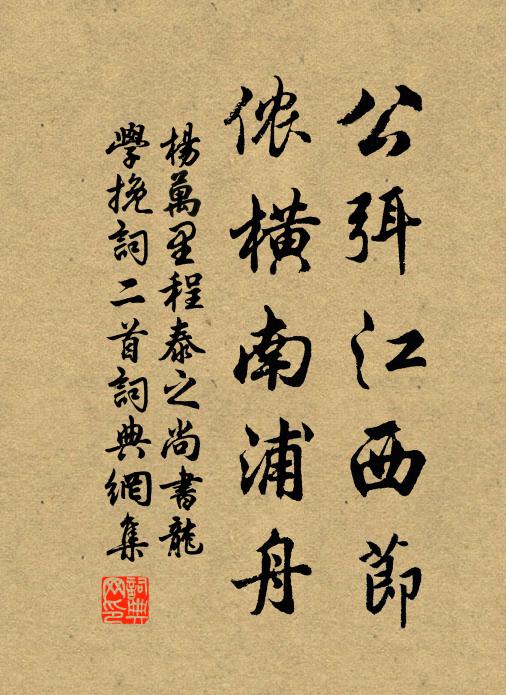 公弭江西節
侬橫南浦舟
楊萬里程泰之尚書龍
學挽詞二首詞典網集
詞典网印